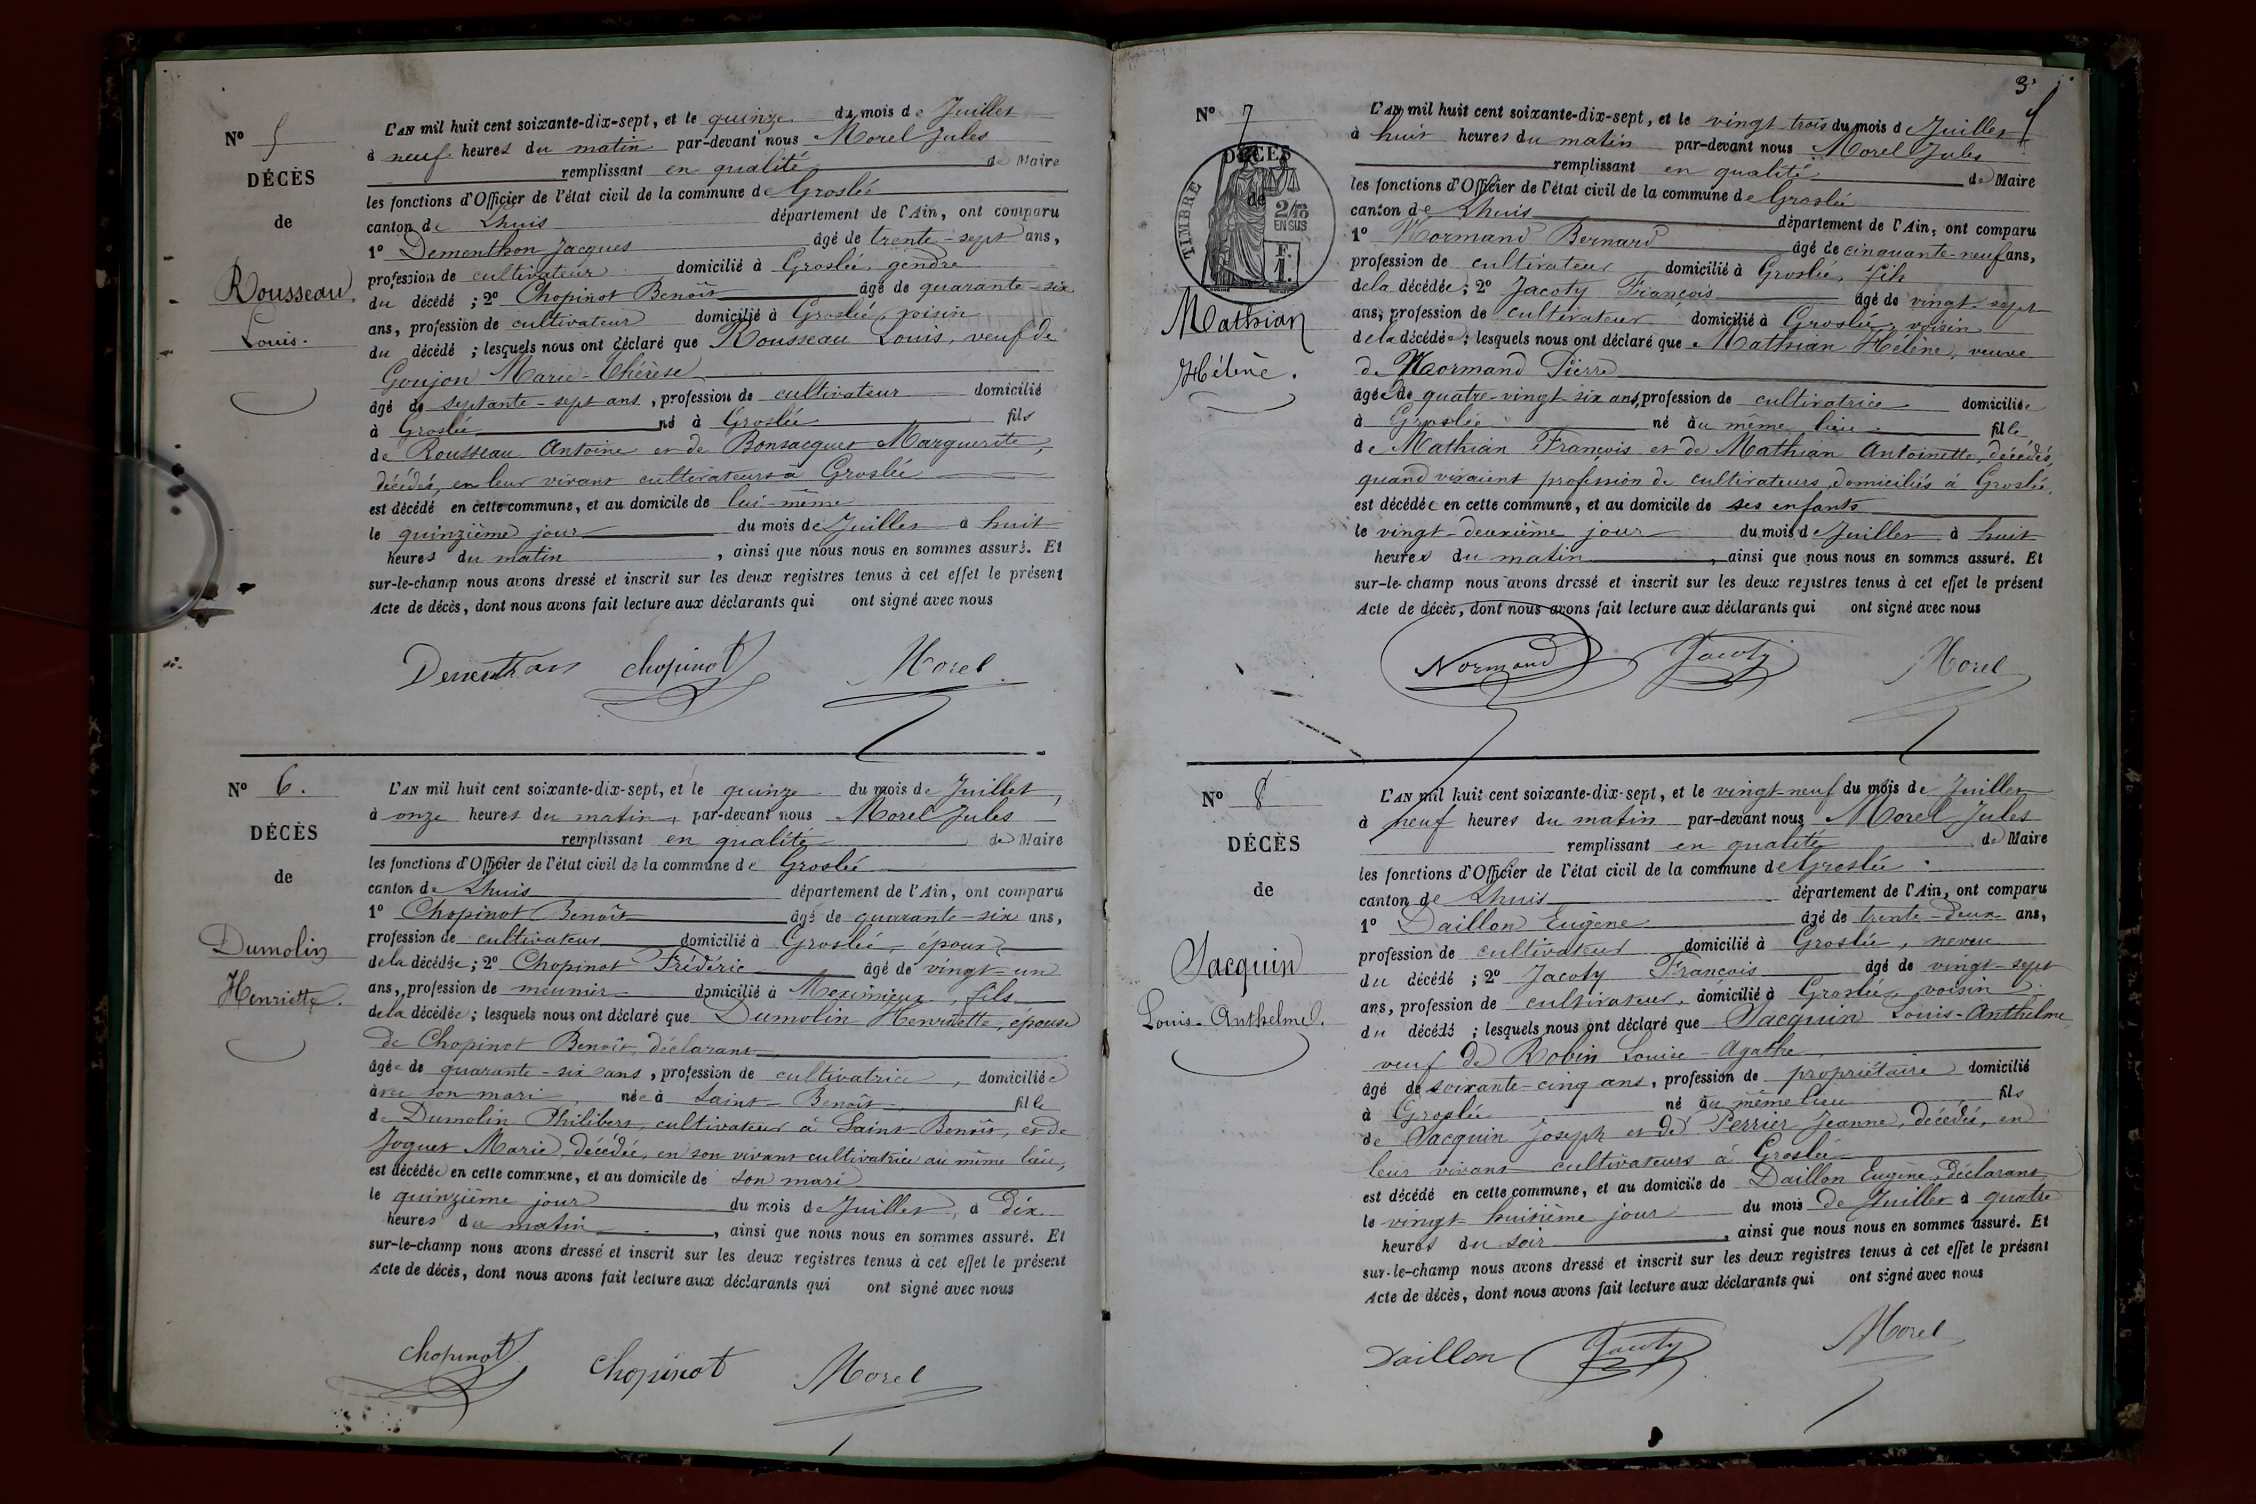 N° 5
DÉCÈS
de
Rousseau
Louis.
L'AN mil huit cent soixante-dix-sept, et le quinze du mois de Juillet
à neuf heures du matin par-devant nous Morel Jules
remplissant en qualité de Maire
les fonctions d'Officier de l'état civil de la commune de Groslée
canton de Lhuis département de l'Ain, ont comparu
1° Dementhon Jacques âgé de trente-sept ans,
profession de cultivateur domicilié à Groslée, gendre
du décédé ; 2° Chopinot Benoît âgé de quarante-six
ans, profession de cultivateur domicilié à Groslée, voisin
du décédé ; lesquels nous ont déclaré que Rousseau Louis, veuf de
Goujon Marie-Thérèse
âgé de septante-sept ans, profession de cultivateur domicilié
à Groslée né à Groslée fils
de Rousseau Antoine et de Bonsacquet Marguerite,
décédés, en leur vivant cultivateurs à Groslée
est décédé en cette commune, et au domicile de lui-même
le quinzième jour du mois de Juillet à huit
heures du matin, ainsi que nous nous en sommes assuré. Et
sur-le-champ nous avons dressé et inscrit sur les deux registres tenus à cet effet le présent
Acte de décès, dont nous avons fait lecture aux déclarants qui ont signé avec nous
Dementhon chopinot Morel
N° 6.
DÉCÈS
de
Dumolin
Henriette.
L'AN mil huit cent soixante-dix-sept, et le quinze du mois de Juillet,
à onze heures du matin, par-devant nous Morel Jules
remplissant en qualité de Maire
les fonctions d'Officier de l'état civil de la commune de Groslée
canton de Lhuis département de l'Ain, ont comparu
1° Chopinot Benoît âgé de quarante-six ans,
profession de cultivateur domicilié à Groslée, époux
de la décédée ; 2° Chopinot Frédéric âgé de vingt-un
ans, profession de meunier domicilié à Meximieux, fils
de la décédée ; lesquels nous ont déclaré que Dumolin Henriette, épouse
de Chopinot Benoît, déclarant
âgée de quarante-six ans, profession de cultivatrice, domiciliée
avec son mari, née à Saint-Benoît, fille
de Dumolin Philibert, cultivateur à Saint-Benoît, et de
Joguet Marie, décédée, en son vivant cultivatrice au même lieu,
est décédée en cette commune, et au domicile de son mari
le quinzième jour du mois de Juillet, à dix
heures du matin, ainsi que nous nous en sommes assuré. Et
sur-le-champ nous avons dressé et inscrit sur les deux registres tenus à cet effet le présent
Acte de décès, dont nous avons fait lecture aux déclarants qui ont signé avec nous
chopinot Chopinot Morel
3
N° 7
DÉCÈS
de
TIMBRE
2/10
EN SUS
F.
1.
Mathian
Hélène.
L'AN mil huit cent soixante-dix-sept, et le vingt-trois du mois de Juillet
à huit heures du matin par-devant nous Morel Jules
remplissant en qualité de Maire
les fonctions d'Officier de l'état civil de la commune de Groslée
canton de Lhuis département de l'Ain, ont comparu
1° Normand Bernard âgé de cinquante-neuf ans,
profession de cultivateur domicilié à Groslée, fils
de la décédée ; 2° Jacoty François âgé de vingt-sept
ans, profession de cultivateur domicilié à Groslée, voisin
de la décédée ; lesquels nous ont déclaré que Mathian Hélène, veuve
de Normand Pierre
âgée de quatre-vingt-six ans, profession de cultivatrice domiciliée
à Groslée né au même lieu fille
de Mathian François et de Mathian Antoinette, décédés,
quand vivaient profession de cultivateurs, domiciliés à Groslée,
est décédée en cette commune, et au domicile de ses enfants
le vingt-deuxième jour du mois de Juillet à huit
heures du matin, ainsi que nous nous en sommes assuré. Et
sur-le-champ nous avons dressé et inscrit sur les deux registres tenus à cet effet le présent
Acte de décès, dont nous avons fait lecture aux déclarants qui ont signé avec nous
Normand Jacoty Morel
N° 8
DÉCÈS
de
Jacquin
Louis-Anthelme.
L'AN mil huit cent soixante-dix-sept, et le vingt-neuf du mois de Juillet
à neuf heures du matin par-devant nous Morel Jules
remplissant en qualité de Maire
les fonctions d'Officier de l'état civil de la commune de Groslée
canton de Lhuis département de l'Ain, ont comparu
1° Daillon Eugène âgé de trente-deux ans,
profession de cultivateur domicilié à Groslée, neveu
du décédé ; 2° Jacoty François âgé de vingt-sept
ans, profession de cultivateur, domicilié à Groslée, voisin
du décédé ; lesquels nous ont déclaré que Jacquin Louis-Anthelme
veuf de Robin Louise-Agathe
âgé de soixante-cinq ans, profession de propriétaire domicilié
à Groslée né au même lieu fils
de Jacquin Joseph et de Perrier Jeanne, décédés, en
leur vivant cultivateurs à Groslée
est décédé en cette commune, et au domicile de Daillon Eugène, déclarant
le vingt-huitième jour du mois de Juillet à quatre
heures du soir, ainsi que nous nous en sommes assuré. Et
sur-le-champ nous avons dressé et inscrit sur les deux registres tenus à cet effet le présent
Acte de décès, dont nous avons fait lecture aux déclarants qui ont signé avec nous
Daillon Jacoty Morel